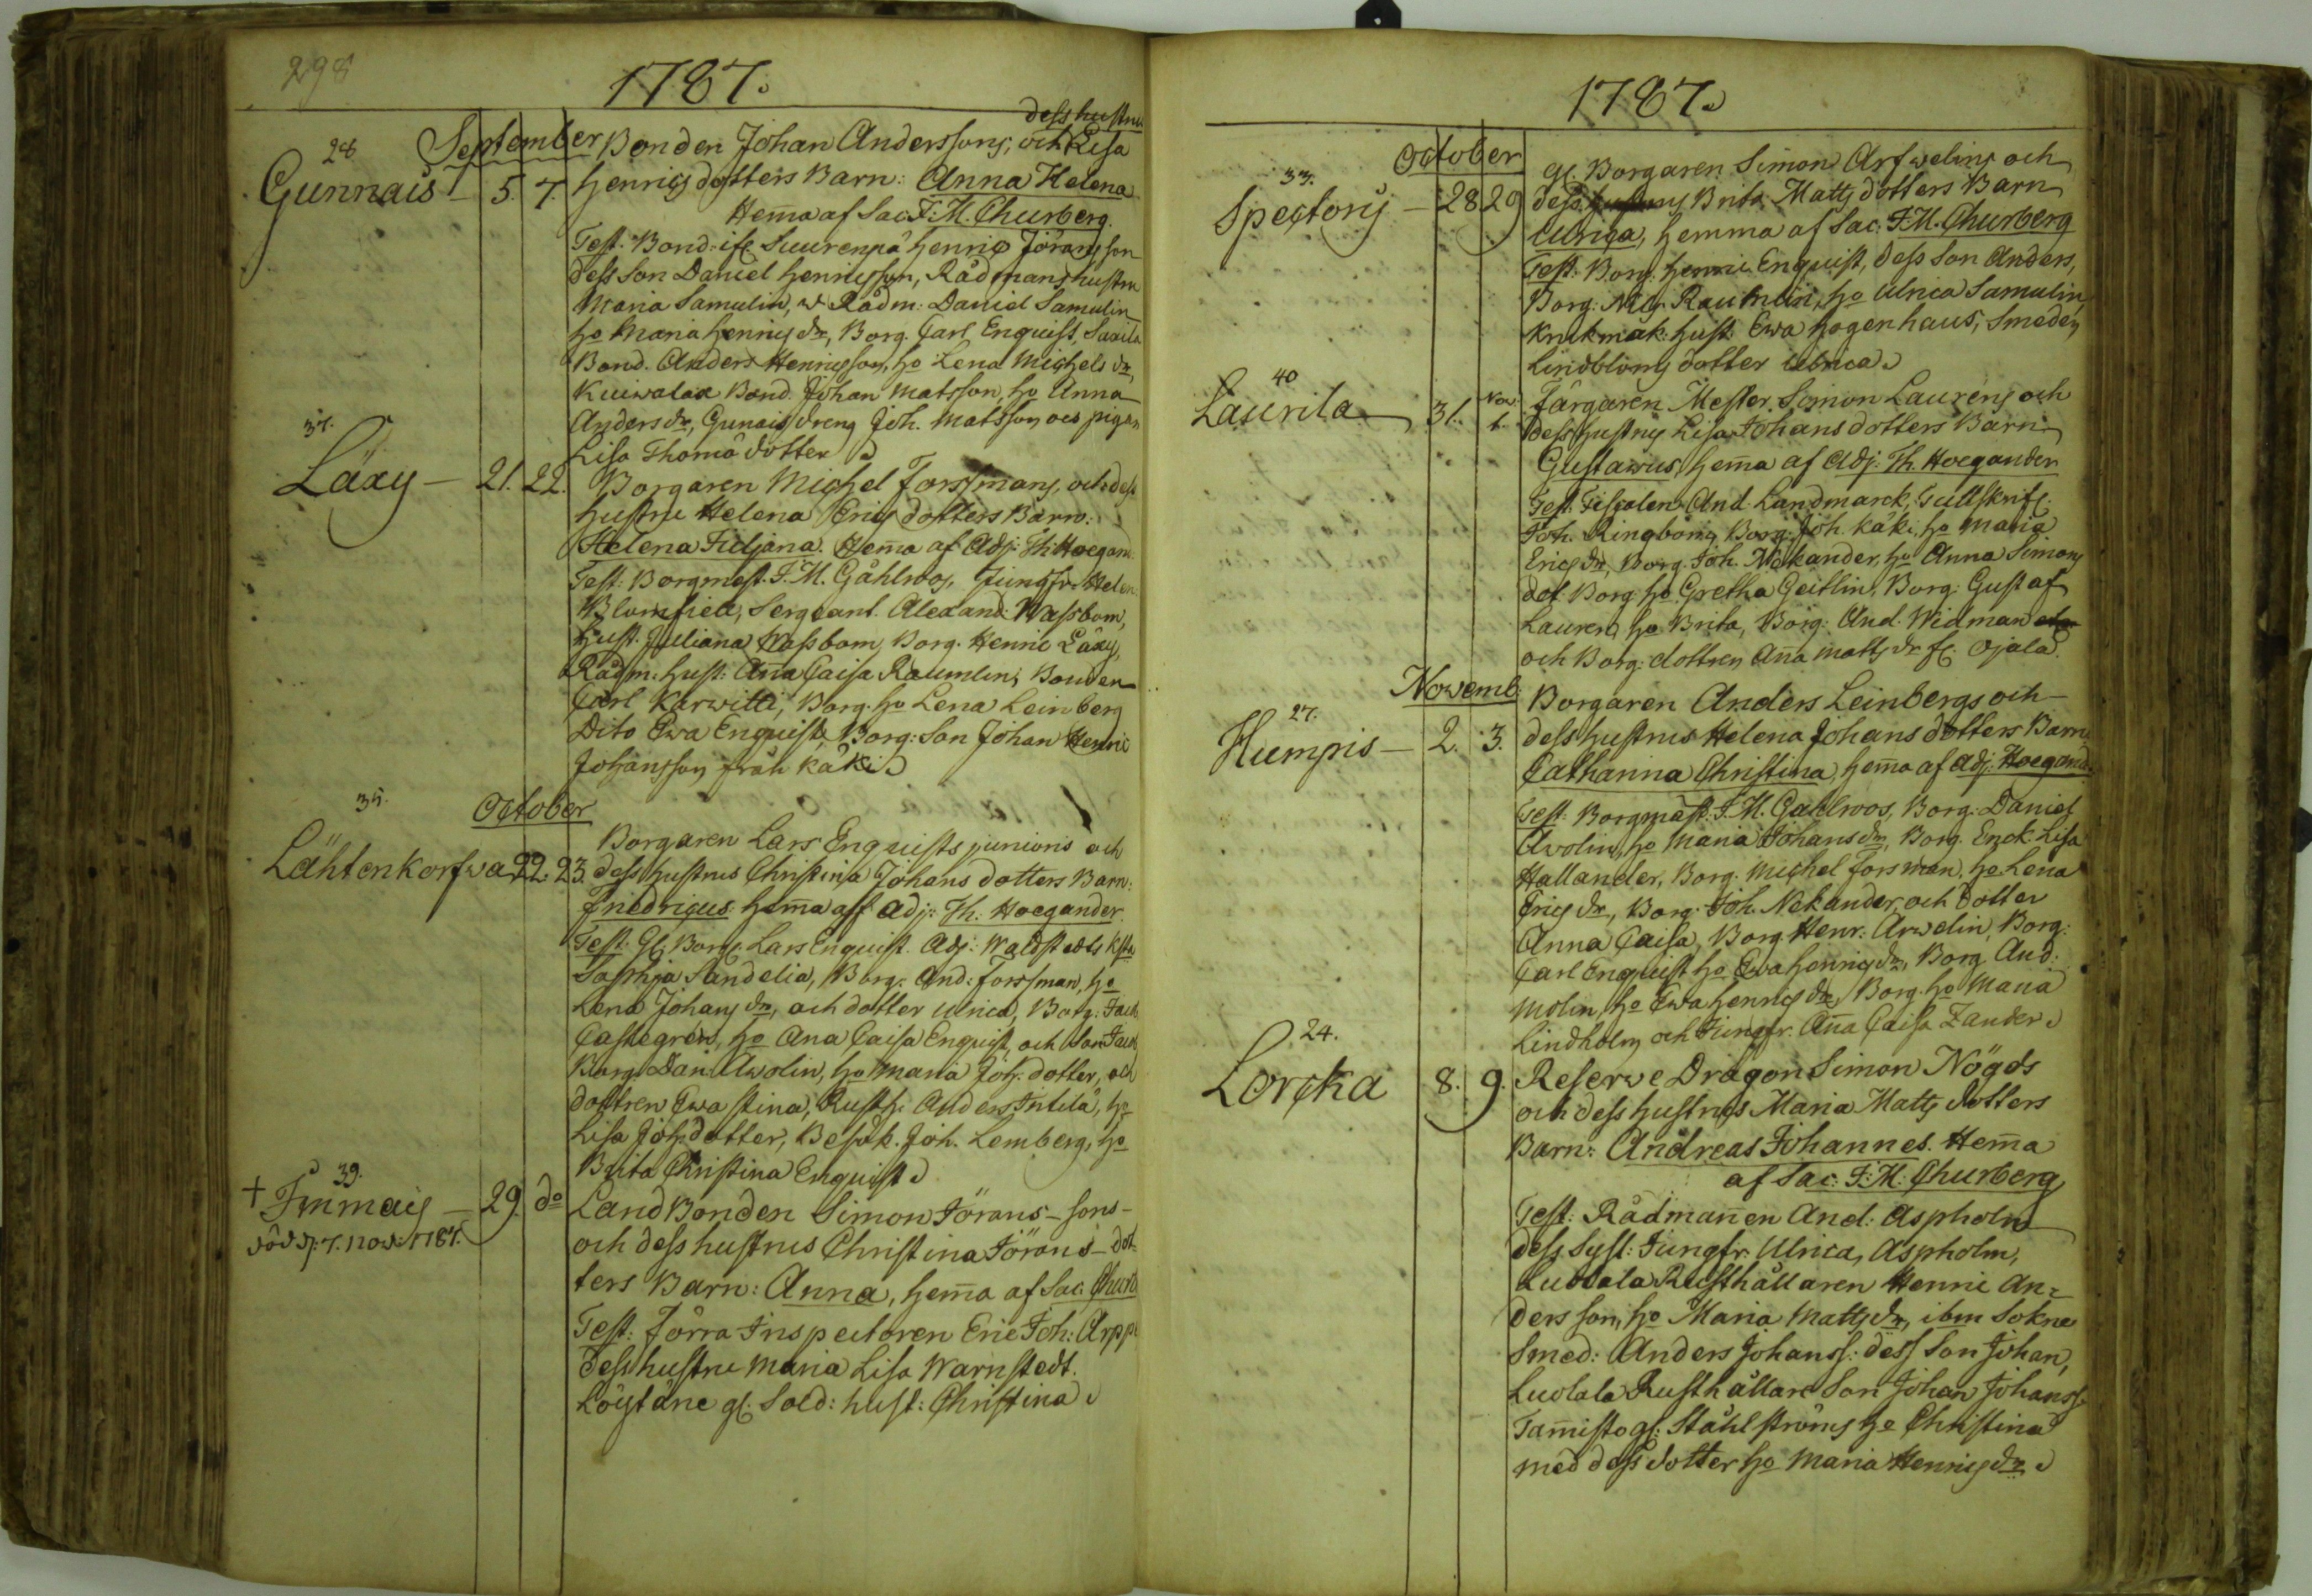 298
1787.
September
dess hustru
28
Gunnais — 5. 7.
Bonden Johan Anderssons, och Lisa
Henrics dotters Barn: Anna Helena
Hem̄a af Sac. F. M. Churberg.
Test. Bond. ifr. Suurenpä Henric Jöransson
dess Son Daniel Henricsson, Rådmans hustru
Maria Samulin, Rådm: Daniel Samulin
ho Maria Henrics dr, Borg. Carl Enquist, Saxila
Bond. Anders Henricsson, ho Lena Michels dr,
Kuiwalax Bond. Johan Matsson, ho Anna
Anders dr, Gunnais dreng Joh. Matsson och pigan
Lisa Thomä dotter
37.
Läxy — 21. 22.
Borgaren Michel Forssmans, och dess
hustru Helena Erics dotters Barn:
Helena Juljana. Hem̄a af Adj: Th. Hoegand:
Test: Borgmest. F. M. Gåhlroos, Jungfr. Helen.
Blomfiell, Sergeant. Alexand. Wassbom,
Hust. Juliana Wassbom, Borg. Henric Läxy,
Rådm: hust: An̄a Caisa Raumlin, Bonden
Carl Karwitti, Borg. ho Lena Leinberg
Dito Ewa Enquist, Borg: Son Johan Henric
Johansson från Käki
October
35.
Lähtenkorfwa 22. 23.
Borgaren Lars Enquists junioris och
dess hustrus Christina Johans dotters Barn:
Fredricus. hem̄a af Adj: Th: Hoegander.
Test: Gl. Borg. Lars Enquist. Adj: Waldstedts
Sophja Sandelia, Borg. And: Forssman, ho
Lena Johans dr, och dotter Ulrica, Borg: Jac
Castegren, ho Ana Caisa Enquist, och Son Jac
Borg. Dan. Awolin, ho Maria Joh. dotter, och
dottren Ewa Stina, Rusth. Anders Intila, ho
Lisa Joh. dotter, Besök. Joh. Lemberg, ho
Brita Christina Enquist
39.
+ Immais — 29. do
död d. 7. nov. 1787.
Land Bonden Simon Jörans-sons-
och dess hustrus Christina Jörans-dot-
ters Barn: Anna, hem̄a af Sac. Churb
Test: Förra Inspectoren Eric Joh: Arppe
dess hustru Maria Lisa Warnstedt.
Löytäne gl: Sold: hust: Christina
1787.
October
33.
Spectorj — 28 29
gl. Borgaren Simon Arfwelins och
dess Brita Matts dotters Barn
Ulrica, hemma af Sac: F. M. Churberg
Test: Borg. Henric Enquist, dess Son Anders,
Borg. Mag. Raumlin, ho Ulrica Samulin
Krukmak: hust. Ewa Hogenhaus, Smeden
Lindbloms dotter Ulrica
40
Laurila — 31. Nov. 1.
Färgaren Mester Simon Laurens och
dess hustrus Lisa Johans dotters Barn
Gustawus, hem̄a af Adj: Th. Hoegander
Test. Fiscalen And. Landmarck, Tullskrif.
Joh. Ringbom, Borg. Joh. Käki, ho Maria
Erics dr, Borg. Joh. Nekander, ho Anna Simons
dot. Borg. ho Gretha Geitlin, Borg. Gustaf
Lauren, ho Brita, Borg: And. Widman
och Borg: dottren An̄a Matts dr fr. Ojala.
Nowemb:
27.
Humpis — 2. 3.
Borgaren Anders Leinbergs och
dess hustrus Helena Johans dotters Barn
Catharina Christina, hem̄a af Adj: Hoegand.
Test: Borgmest. F. M. Gahlroos, Borg: Daniel
Awolin, ho Maria Johans dr, Borg. Enck. Lisa
Hallander, Borg. Michel Forsman, ho Lena
Erics dr, Borg: Joh. Nekander, och dotter
Anna Caisa, Borg Henr: Arwelin, Borg:
Carl Enquist ho Ewa Henrics dr, Borg. And.
Molin, ho Ewa Henrics dr, Borg. ho Maria
Lindholm och Jungfr. An̄a Caisa Zander
24.
Lorcka 8. 9.
Reserwe Dragon Simon Nögds
och dess hustrus Maria Matts dotters
Barn: Andreas Johannes. Hem̄a
af Sac: F: M: Churberg
Test: Rådman̄en And: Aspholm
dess Syst: Jungfr. Ulrica, Aspholm,
Luolala Rusthållaren Henric An-
dersson, ho Maria Matts dr, ibm Sokne
Smed: Anders Johanss: dess Son Johan,
Luolala Rusthållare Son Johan Johanss.
Tam̄isto gl: Ståhlströms ho Christina
med dess dotter ho Maria Henrics dr